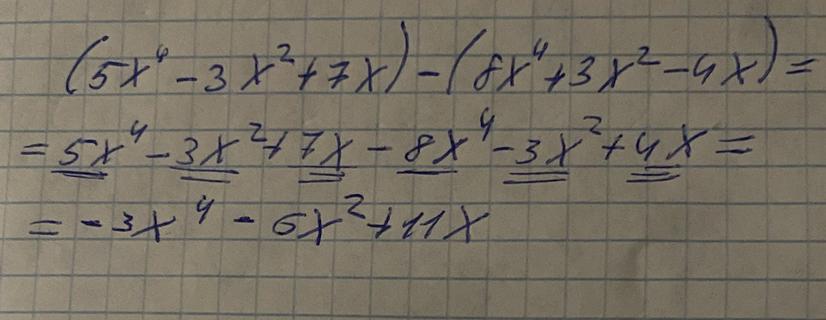 (5x⁴-3x²+7x)-(8x⁴+3x²-4x)=
=5x⁴-3x²+7x-8x⁴-3x²+4x=
=-3x⁴-6x²+11x